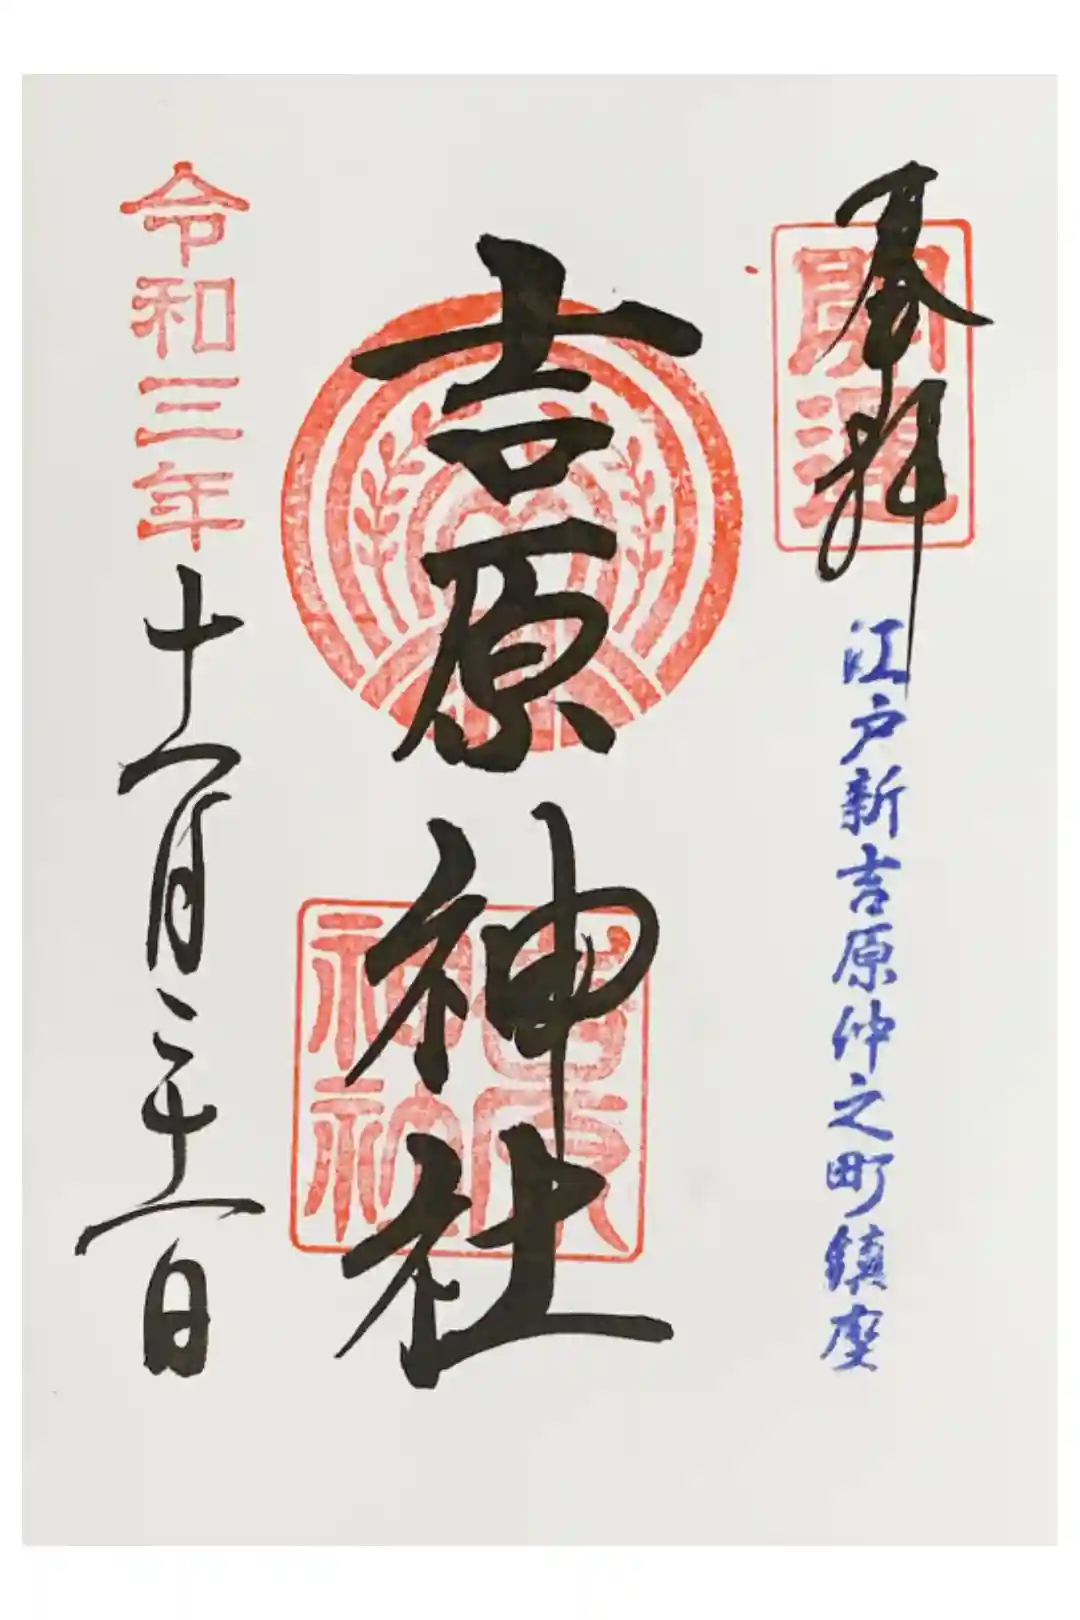 奉拝
開運
江戸新吉原仲之町鎮座
吉原神社
吉原神社
令和三年十一月二十一日